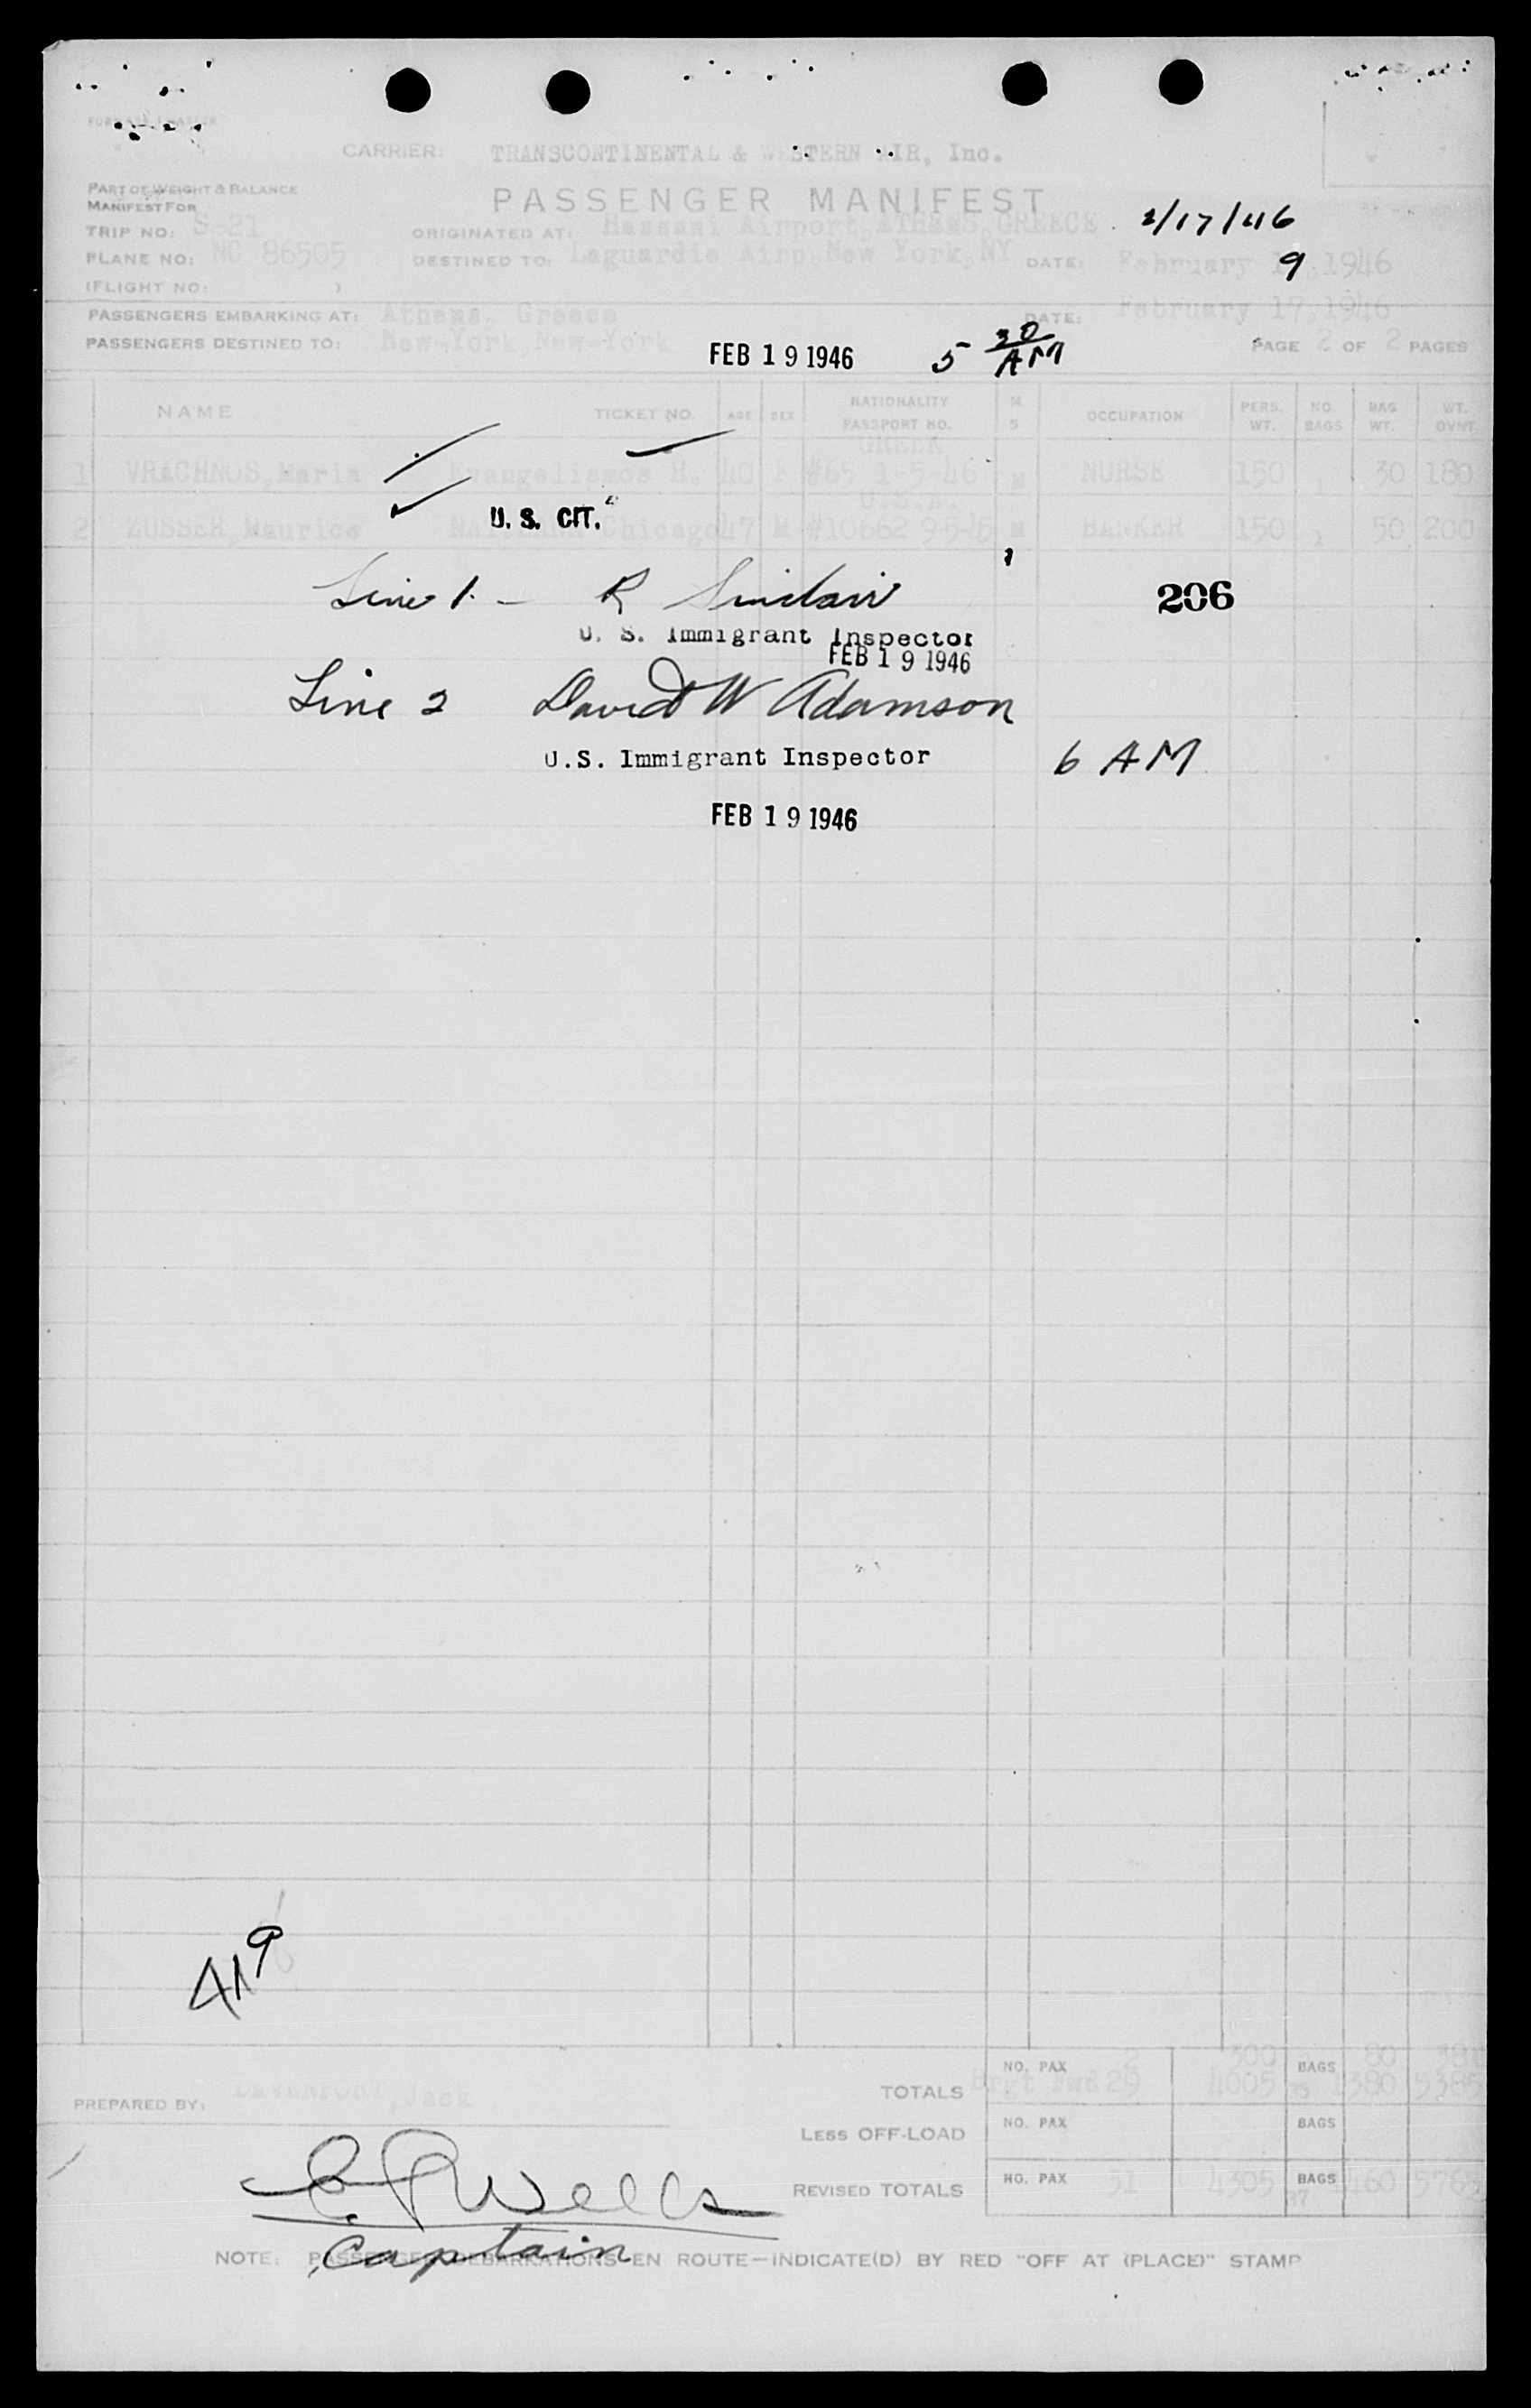 CARRIER: TRANSCONTINENTAL & WESTERN AIR, Inc.
PART OF WEIGHT & BALANCE
MANIFEST FOR
PASSENGER MANIFEST
2/17/46
TRIP NO: S-21 ORIGINATED AT: Hassani Airport, GREECE
PLANE NO: NC 86505 DESTINED TO: Laguardia Airp, New York, NY DATE: February 9, 1946
(FLIGHT NO: )
PASSENGERS EMBARKING AT: Athens, Greece DATE: February 17, 1946
PASSENGERS DESTINED TO: New-York, New-York FEB 19 1946 5 30 AM PAGE 2 OF 2 PAGES
NAME TICKET NO. AGE SEX NATIONALITY PASSPORT NO. M S OCCUPATION PERS. WT. NO. BAGS BAG WT. WT. OVNT.
GREEK
1 VRACHNOS, Maria Evangelismos H. 40 F #65 1-5-46 M NURSE 150 1 30 180
U.S.A.
U. S. CIT.
2 ZUSSER, Maurice Chicago 47 M #10662 M BANKER 150 2 50 200
Line 1. - R Sinclair 206
U. S. Immigrant Inspector
FEB 19 1946
Line 2 David W Adamson
U.S. Immigrant Inspector 6 AM
FEB 19 1946
419
NO. PAX 2 300 BAGS 80
TOTALS Brgt Fwd 29 4005 1380 5385
PREPARED BY: DAVENPORT, Jack
LESS OFF-LOAD NO. PAX BAGS
REVISED TOTALS NO. PAX 31 4305 BAGS 37 1460 5765
Wells
Captain
NOTE: PASSENGER DEBARKATIONS EN ROUTE—INDICATE(D) BY RED "OFF AT (PLACE)" STAMP